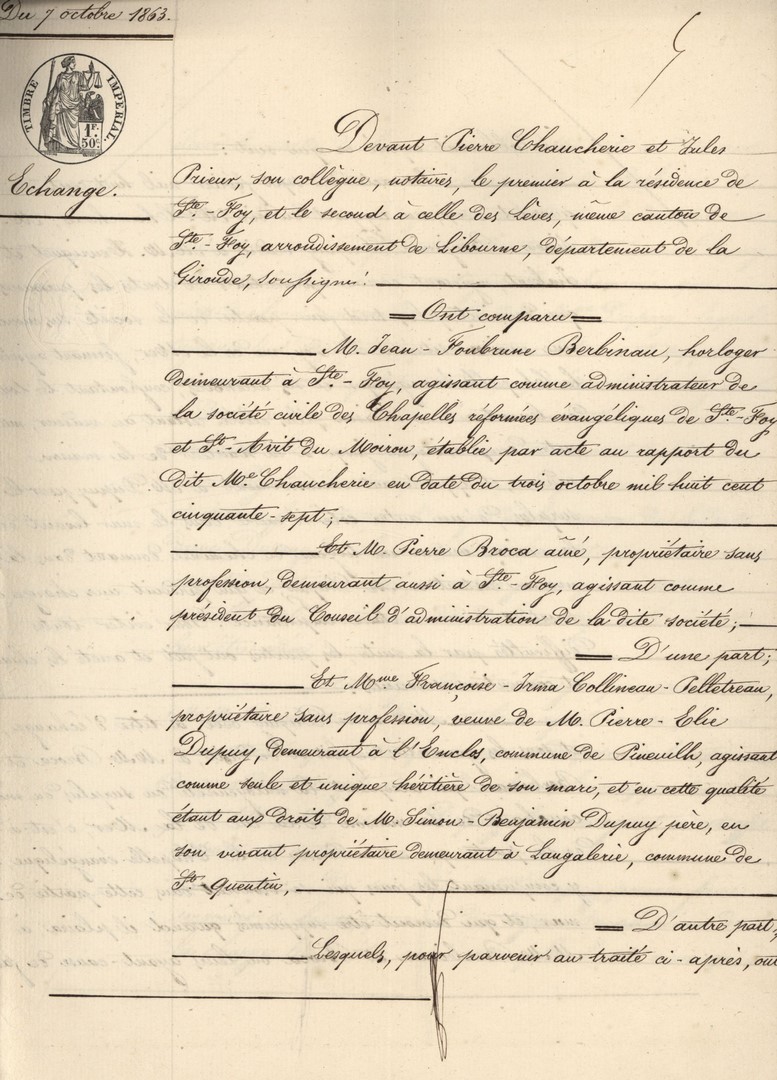 Du 7 octobre 1863.
TIMBRE IMPÉRIAL
1F.
50c.
Echange.
Devant Pierre Chaucherie et Jules
Prieur, son collègue, notaires, le premier à la résidence de
Ste.-Foy, et le second à celle des Lèves, même canton de
Ste.-Foy, arrondissement de Libourne, département de la
Gironde, soussignés:
Ont comparu
M. Jean-Fonbrune Berbinau, horloger
demeurant à Ste.-Foy, agissant comme administrateur de
la société civile des Chapelles réformées évangéliques de Ste.-Foy
et St.-Avit du Moiron, établie par acte au rapport du
dit Me. Chaucherie en date du trois octobre mil huit cent
cinquante-sept;
Et M. Pierre Broca aîné, propriétaire sans
profession, demeurant aussi à Ste.-Foy, agissant comme
président du Conseil d'administration de la dite société;
D'une part;
Et Mme. Françoise-Irma Collineau-Pelletreau,
propriétaire sans profession, veuve de M. Pierre-Elie
Dupuy, demeurant à l'Enclos, commune de Pineuilh, agissant
comme seule et unique héritière de son mari, et en cette qualité
étant aux droits de M. Simon-Benjamin Dupuy père, en
son vivant propriétaire demeurant à Langalerie, commune de
St.-Quentin,
D'autre part;
Lesquels, pour parvenir au traité ci-après, ont